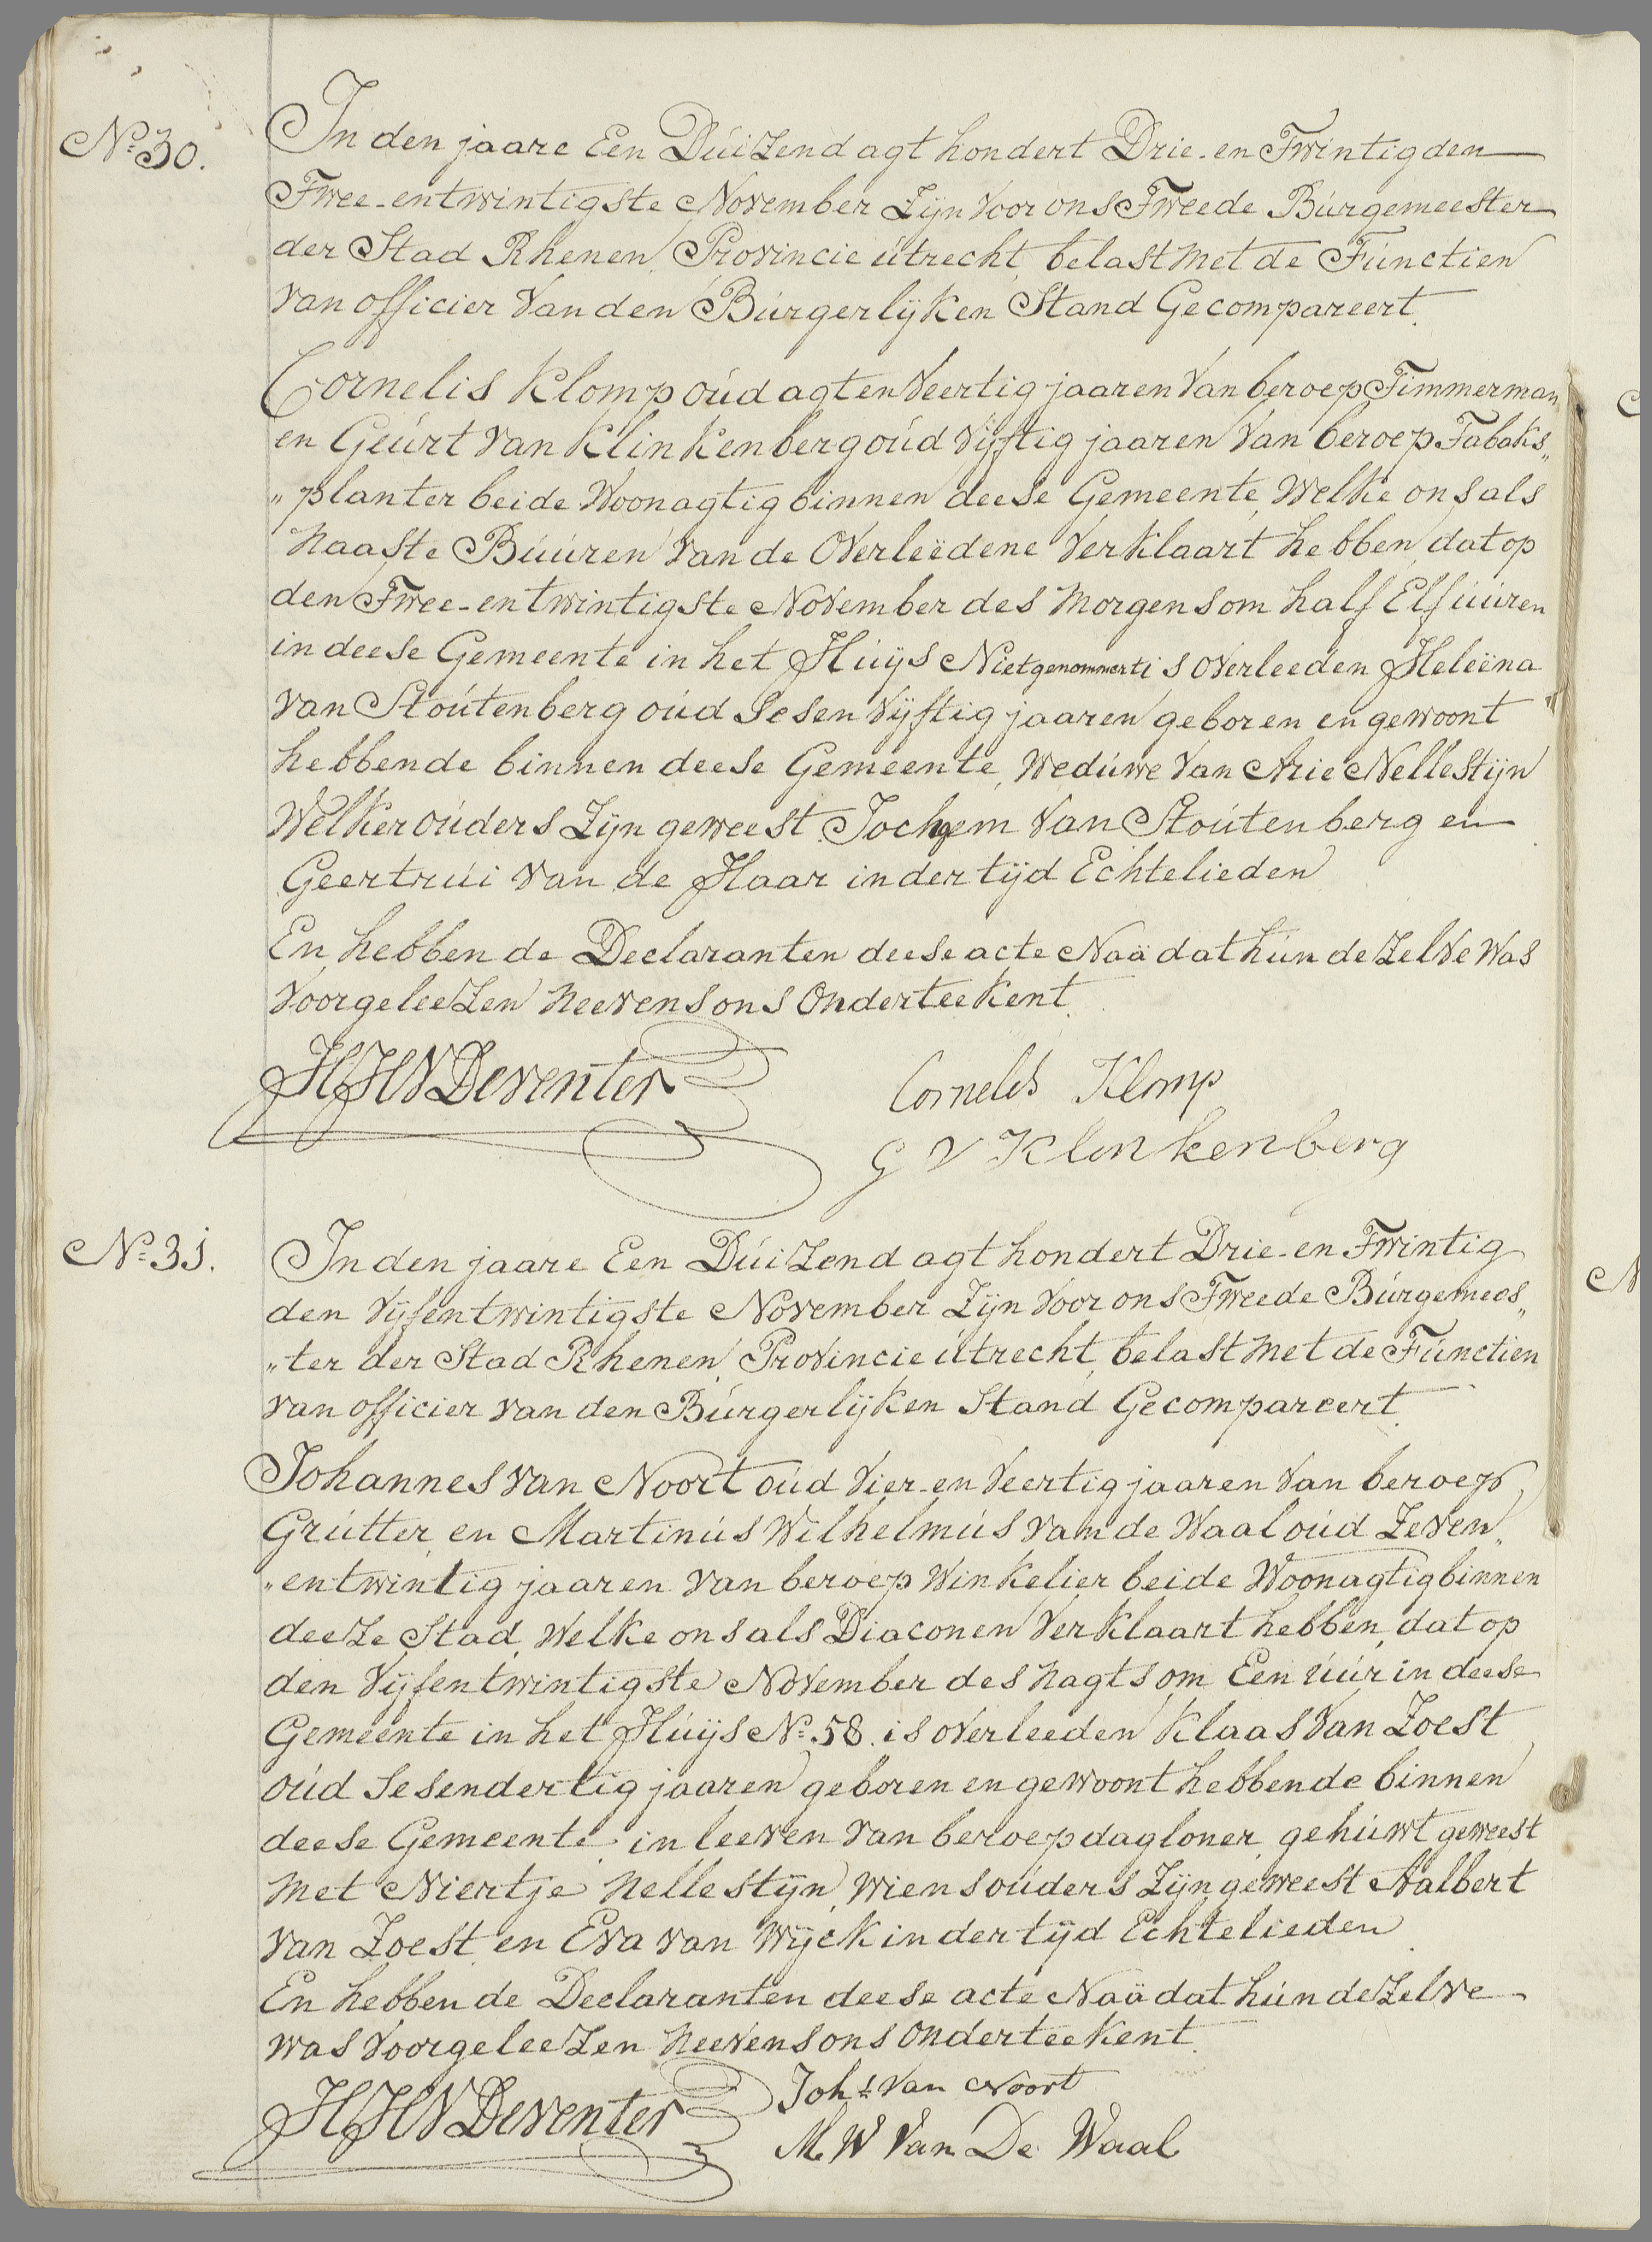 No. 30.
In den jaare Een Duizend agt hondert Drie-en Twintig den
Twee-entwintigste November Zijn Voor ons Tweede Burgemeester
der Stad Rhenen, Provincie utrecht, belast met de Functien
van officier Van den Burgerlijken Stand Gecompareert.
Cornelis Klomp oud agtenveertig jaaren Van beroep Timmerman,
en Geurt van Klinkenberg oud Vijftig jaaren Van beroep Tabaks„
„planter beide Woonagtig binnen deese Gemeente, Welke ons als
Naaste Buuren Van de Overleedene Verklaart hebben, dat op
den Twee-entwintigste November des Morgens om half Elf uuren
in deese Gemeente in het Huijs Niet genommert is overleeden Heleena
van Stoutenberg oud Sesen Vijftig jaaren geboren en gewoont
hebbende binnen deese Gemeente, Weduwe Van Arie Nellestijn
Welker ouders Zijn geweest Jochem Van Stoutenberg en
Geertrui Van de Haar indertijd Echtelieden
En hebben de Declaranten deese acte Naa dat hun de Zelve Was
Voorgeleezen Neevens ons Onderteekent.
HHV Deventer
Cornelis Klomp
G V Klinkenberg
No. 31.
In den jaare Een Duizend agt hondert Drie-en Twintig
den Vijfentwintigste November Zijn Voor ons Tweede Burgemees„
„ter der Stad Rhenen, Provincie utrecht, belast Met de Functien
van officier van den Burgerlijken Stand Gecompareert.
Johannes van Noort oud Vier-en Veertig jaaren Van beroep
Grutter, en Martinus Wilhelmus van de Waal oud Zeven„
„entwintig jaaren van beroep Winkelier beide Woonagtig binnen
deeze Stad, Welke ons als Diaconen Verklaart hebben, dat op
den Vijfentwintigste November des Nagts om Een uur in deese
Gemeente in het Huijs No. 58. is overleeden Klaas Van Zoest
oud Sesendertig jaaren geboren en gewoont hebbende binnen
deese Gemeente, in leeven van beroep dagloner, gehuwt geweest
Met Niertje Nellestijn, Wiens ouders Zijn geweest Aalbert
van Zoest en Eva van Wijck indertijd Echtelieden
En hebben de Declaranten deese acte Naa dat hun de Zelve
was Voorgeleezen Neevens ons Onderteekent.
HHV Deventer
Johs Van Noort
M W Van De Waal